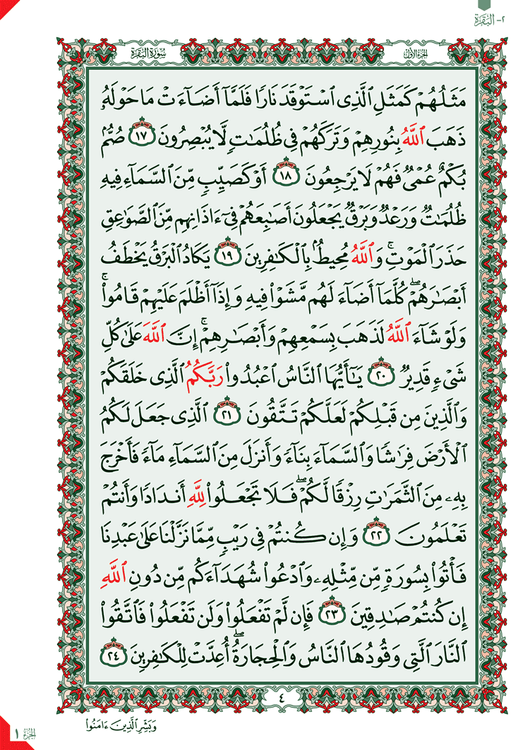 ٢- البَقَرَة
الجزء الأول
سُورَةُ البَقَرَةِ
مَثَلُهُمْ كَمَثَلِ ٱلَّذِى ٱسْتَوْقَدَ نَارًا فَلَمَّآ أَضَآءَتْ مَا حَوْلَهُۥ
ذَهَبَ ٱللَّهُ بِنُورِهِمْ وَتَرَكَهُمْ فِى ظُلُمَـٰتٍ لَّا يُبْصِرُونَ ١٧ صُمٌّۢ
بُكْمٌ عُمْىٌ فَهُمْ لَا يَرْجِعُونَ ١٨ أَوْ كَصَيِّبٍ مِّنَ ٱلسَّمَآءِ فِيهِ
ظُلُمَـٰتٌ وَرَعْدٌ وَبَرْقٌ يَجْعَلُونَ أَصَـٰبِعَهُمْ فِىٓ ءَاذَانِهِم مِّنَ ٱلصَّوَٰعِقِ
حَذَرَ ٱلْمَوْتِ ۚ وَٱللَّهُ مُحِيطٌۢ بِٱلْكَـٰفِرِينَ ١٩ يَكَادُ ٱلْبَرْقُ يَخْطَفُ
أَبْصَـٰرَهُمْ ۖ كُلَّمَآ أَضَآءَ لَهُم مَّشَوْا۟ فِيهِ وَإِذَآ أَظْلَمَ عَلَيْهِمْ قَامُوا۟ ۚ
وَلَوْ شَآءَ ٱللَّهُ لَذَهَبَ بِسَمْعِهِمْ وَأَبْصَـٰرِهِمْ ۚ إِنَّ ٱللَّهَ عَلَىٰ كُلِّ
شَىْءٍ قَدِيرٌ ٢٠ يَـٰٓأَيُّهَا ٱلنَّاسُ ٱعْبُدُوا۟ رَبَّكُمُ ٱلَّذِى خَلَقَكُمْ
وَٱلَّذِينَ مِن قَبْلِكُمْ لَعَلَّكُمْ تَتَّقُونَ ٢١ ٱلَّذِى جَعَلَ لَكُمُ
ٱلْأَرْضَ فِرَٰشًا وَٱلسَّمَآءَ بِنَآءً وَأَنزَلَ مِنَ ٱلسَّمَآءِ مَآءً فَأَخْرَجَ
بِهِۦ مِنَ ٱلثَّمَرَٰتِ رِزْقًا لَّكُمْ ۖ فَلَا تَجْعَلُوا۟ لِلَّهِ أَندَادًا وَأَنتُمْ
تَعْلَمُونَ ٢٢ وَإِن كُنتُمْ فِى رَيْبٍ مِّمَّا نَزَّلْنَا عَلَىٰ عَبْدِنَا
فَأْتُوا۟ بِسُورَةٍ مِّن مِّثْلِهِۦ وَٱدْعُوا۟ شُهَدَآءَكُم مِّن دُونِ ٱللَّهِ
إِن كُنتُمْ صَـٰدِقِينَ ٢٣ فَإِن لَّمْ تَفْعَلُوا۟ وَلَن تَفْعَلُوا۟ فَٱتَّقُوا۟
ٱلنَّارَ ٱلَّتِى وَقُودُهَا ٱلنَّاسُ وَٱلْحِجَارَةُ ۖ أُعِدَّتْ لِلْكَـٰفِرِينَ ٢٤
٤
وَبَشِّرِ ٱلَّذِينَ ءَامَنُوا۟
الجزء ١